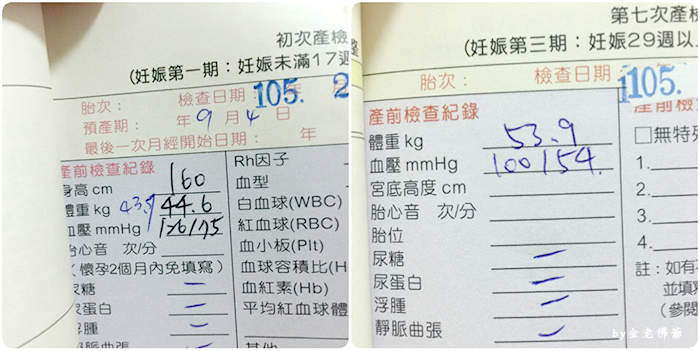 初次產檢
(妊娠第一期：妊娠未滿17週
胎次： 檢查日期：105. 2
預產期： 年9月4日
最後一次月經開始日期： 年
產前檢查紀錄
身高 cm 160
體重 kg 43.5 44.6
血壓 mmHg 126/75
胎心音 次/分
(懷孕2個月內免填寫)
尿糖 —
尿蛋白 —
浮腫 —
靜脈曲張
Rh因子
血型
白血球(WBC)
紅血球(RBC)
血小板(Plt)
血球容積比(H
血紅素(Hb)
平均紅血球體
其他
第七次產檢
(妊娠第三期：妊娠29週以
胎次： 檢查日期：105.
產前檢查紀錄
體重 kg 53.9
血壓 mmHg 100/54.
宮底高度 cm
胎心音 次/分
胎位
尿糖 —
尿蛋白 —
浮腫 —
靜脈曲張 —
產前檢
□無特殊
1.
2.
3.
4.
註：如有不
並填寫
(參閱
by金老佛爺